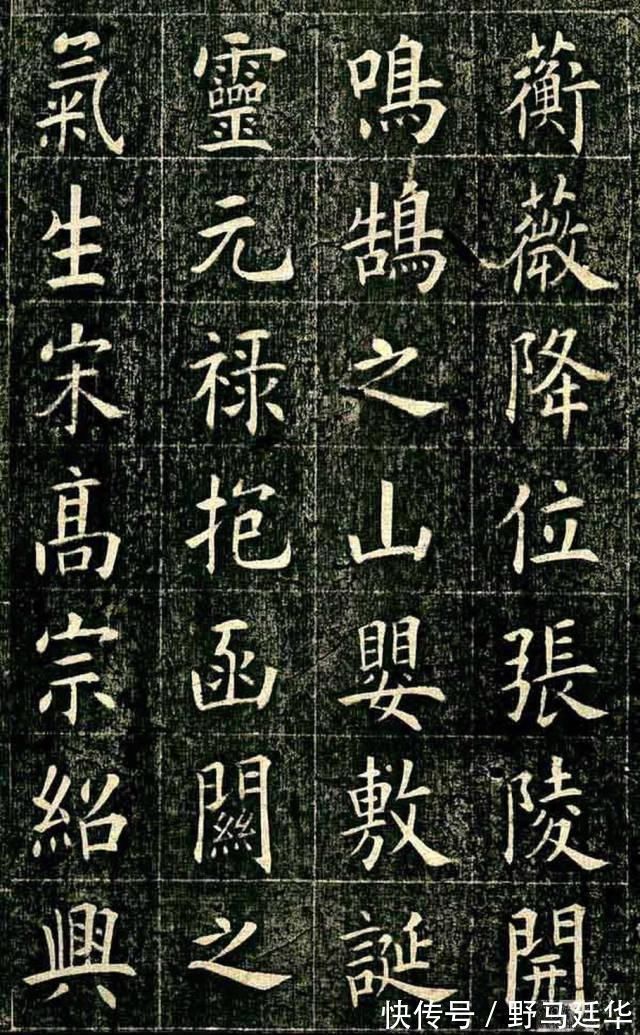 蘅薇降位張陵開
鳴鵠之山嬰敷誕
靈元禄抱函關之
氣生宋高宗紹興
快传号／野马廷华